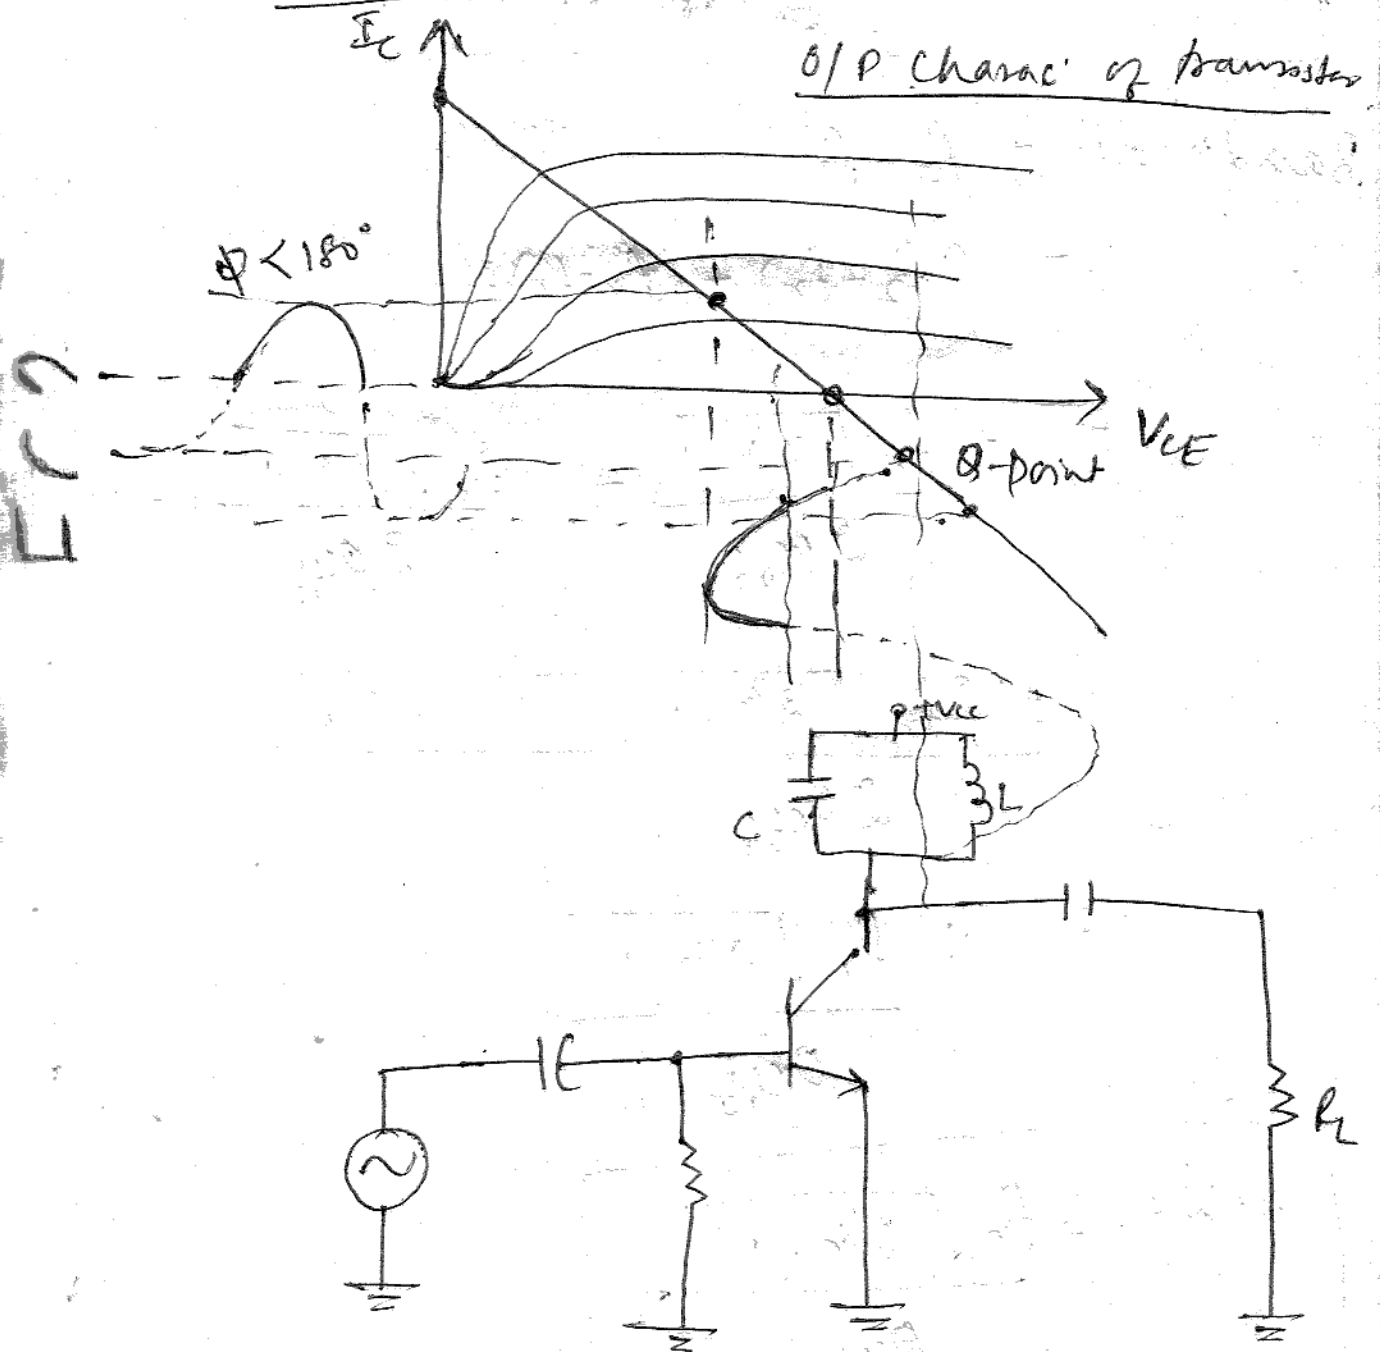 Ic
O/P Charac. of transistor
φ < 180°
VCE
Q-point
+Vcc
C
L
RL